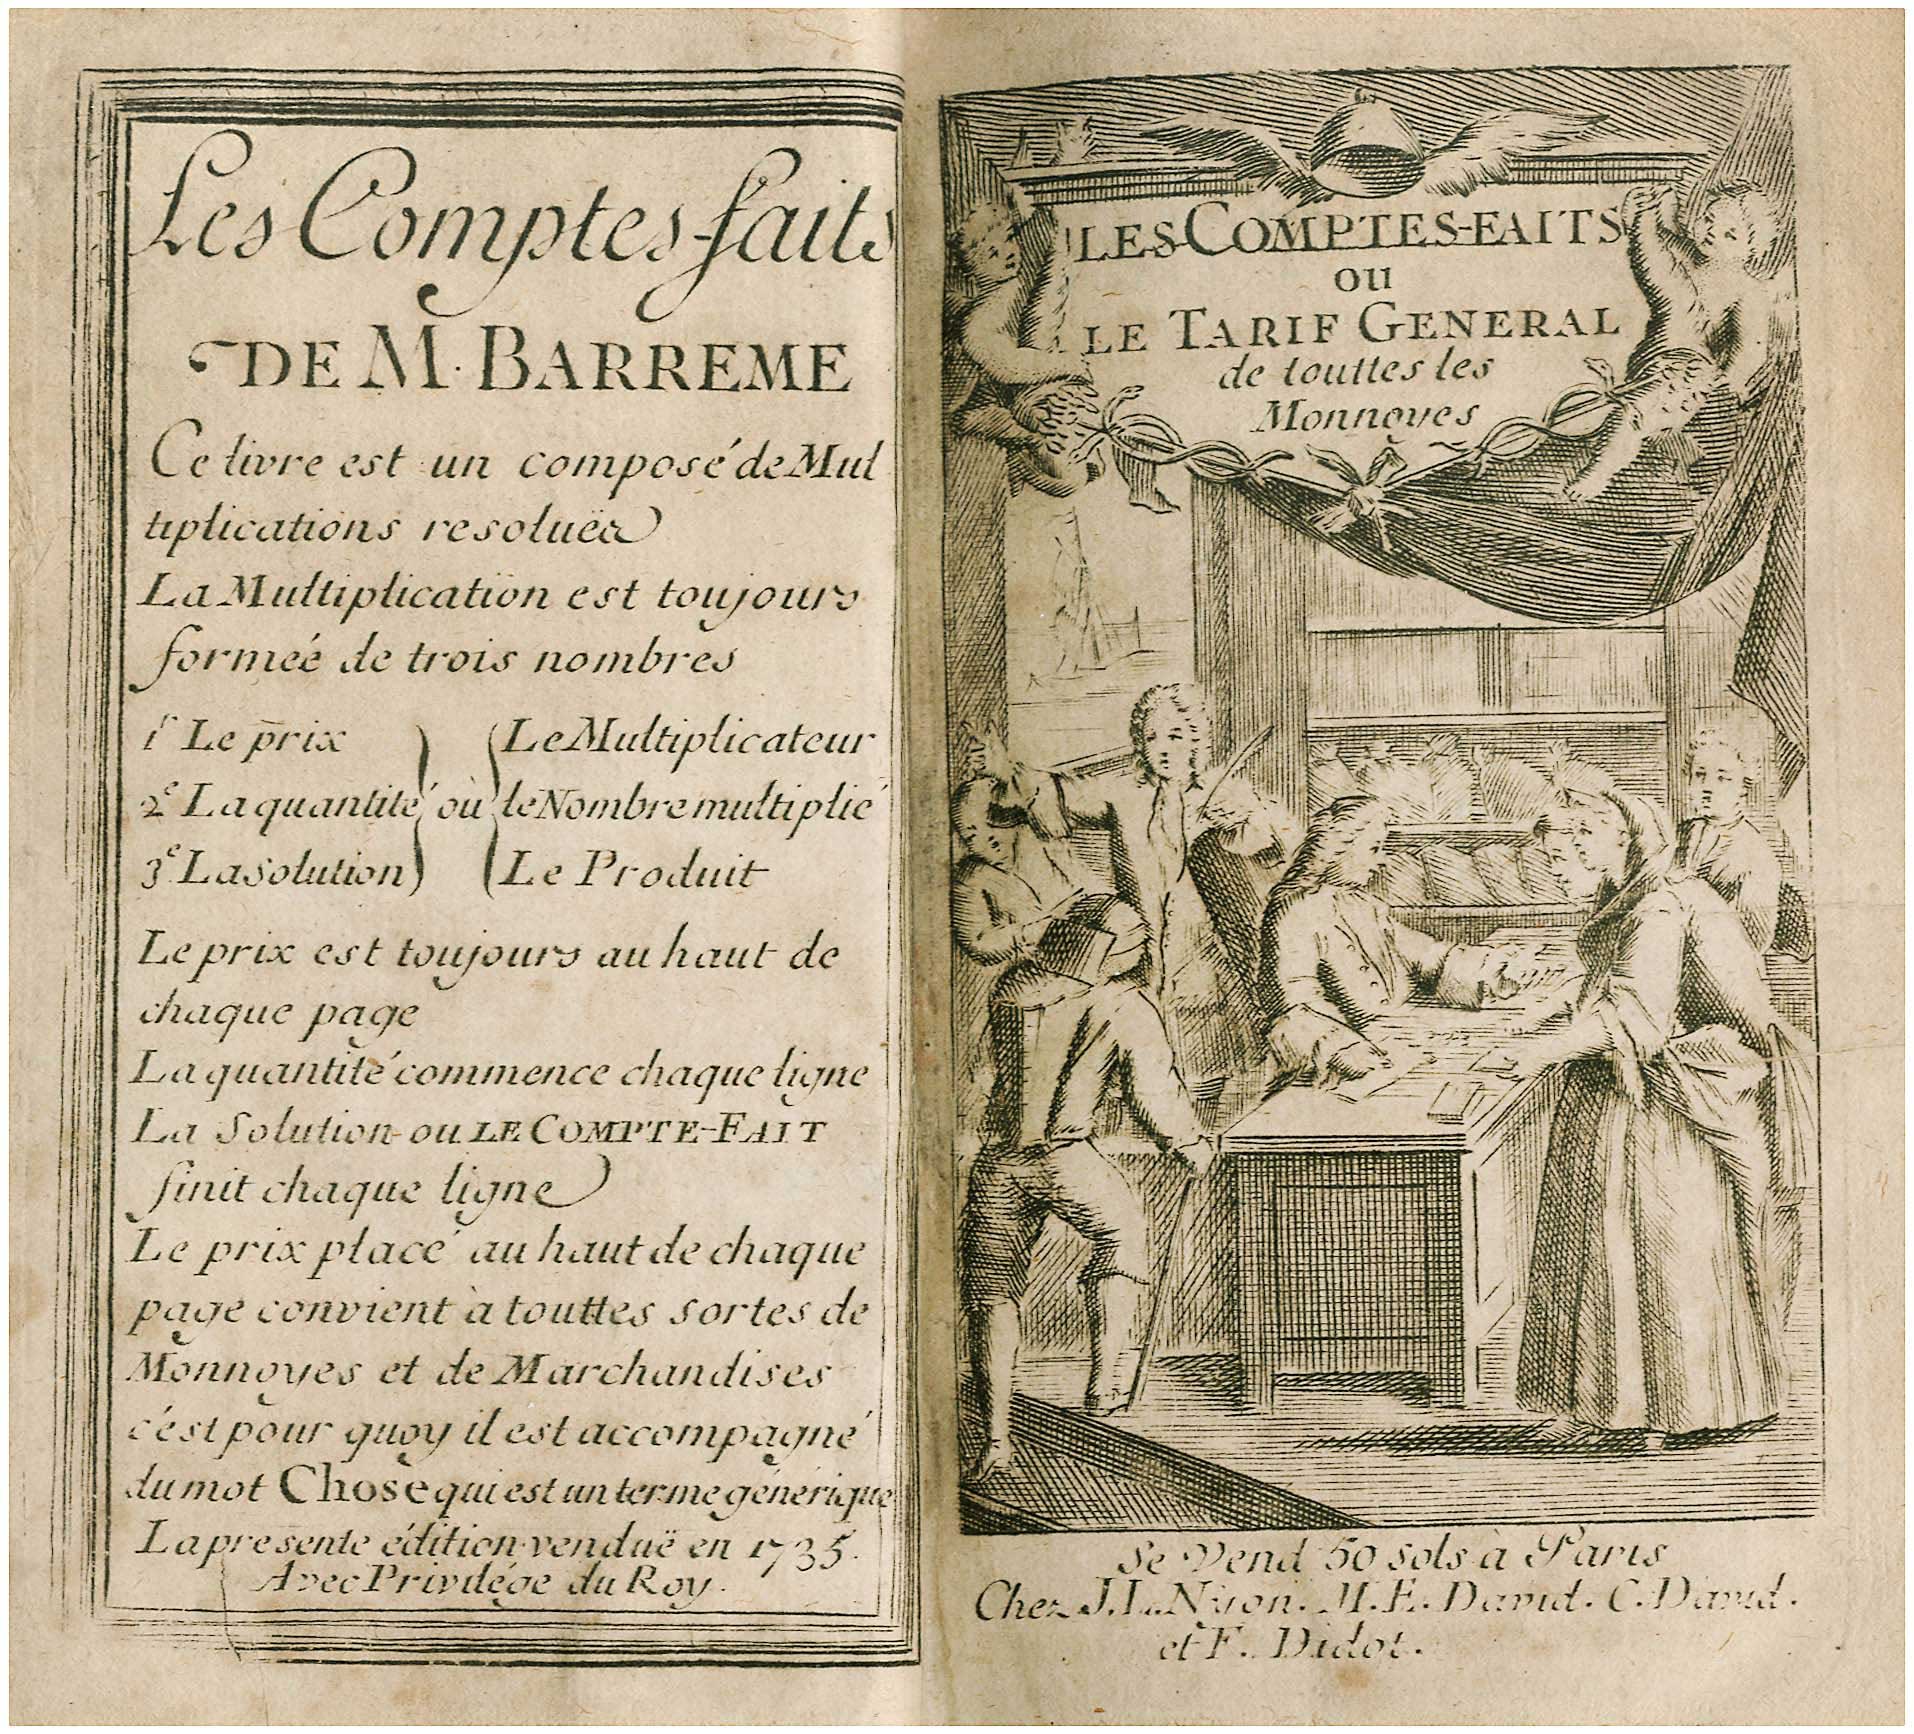 Les Comptes-faits
DE M. BARREME
Ce livre est un composé de Mul
tiplications resoluës
La Multiplication est toujours
formeé de trois nombres
1r Le prix
2e La quantité
3e La solution
où
Le Multiplicateur
le Nombre multiplié
Le Produit
Le prix est toujours au haut de
chaque page
La quantité commence chaque ligne
La Solution ou LE COMPTE-FAIT
finit chaque ligne
Le prix placé au haut de chaque
page convient à touttes sortes de
Monnoyes et de Marchandises
c'est pour quoy il est accompagné
du mot Chose qui est un terme générique
La presente édition venduë en 1735.
Avec Privilége du Roy.
LES COMPTES-FAITS
ou
LE TARIF GENERAL
de touttes les
Monnoyes
Se Vend 50 sols à Paris
Chez J. L. Nyon. M. E. David. C. David.
et F. Didot.